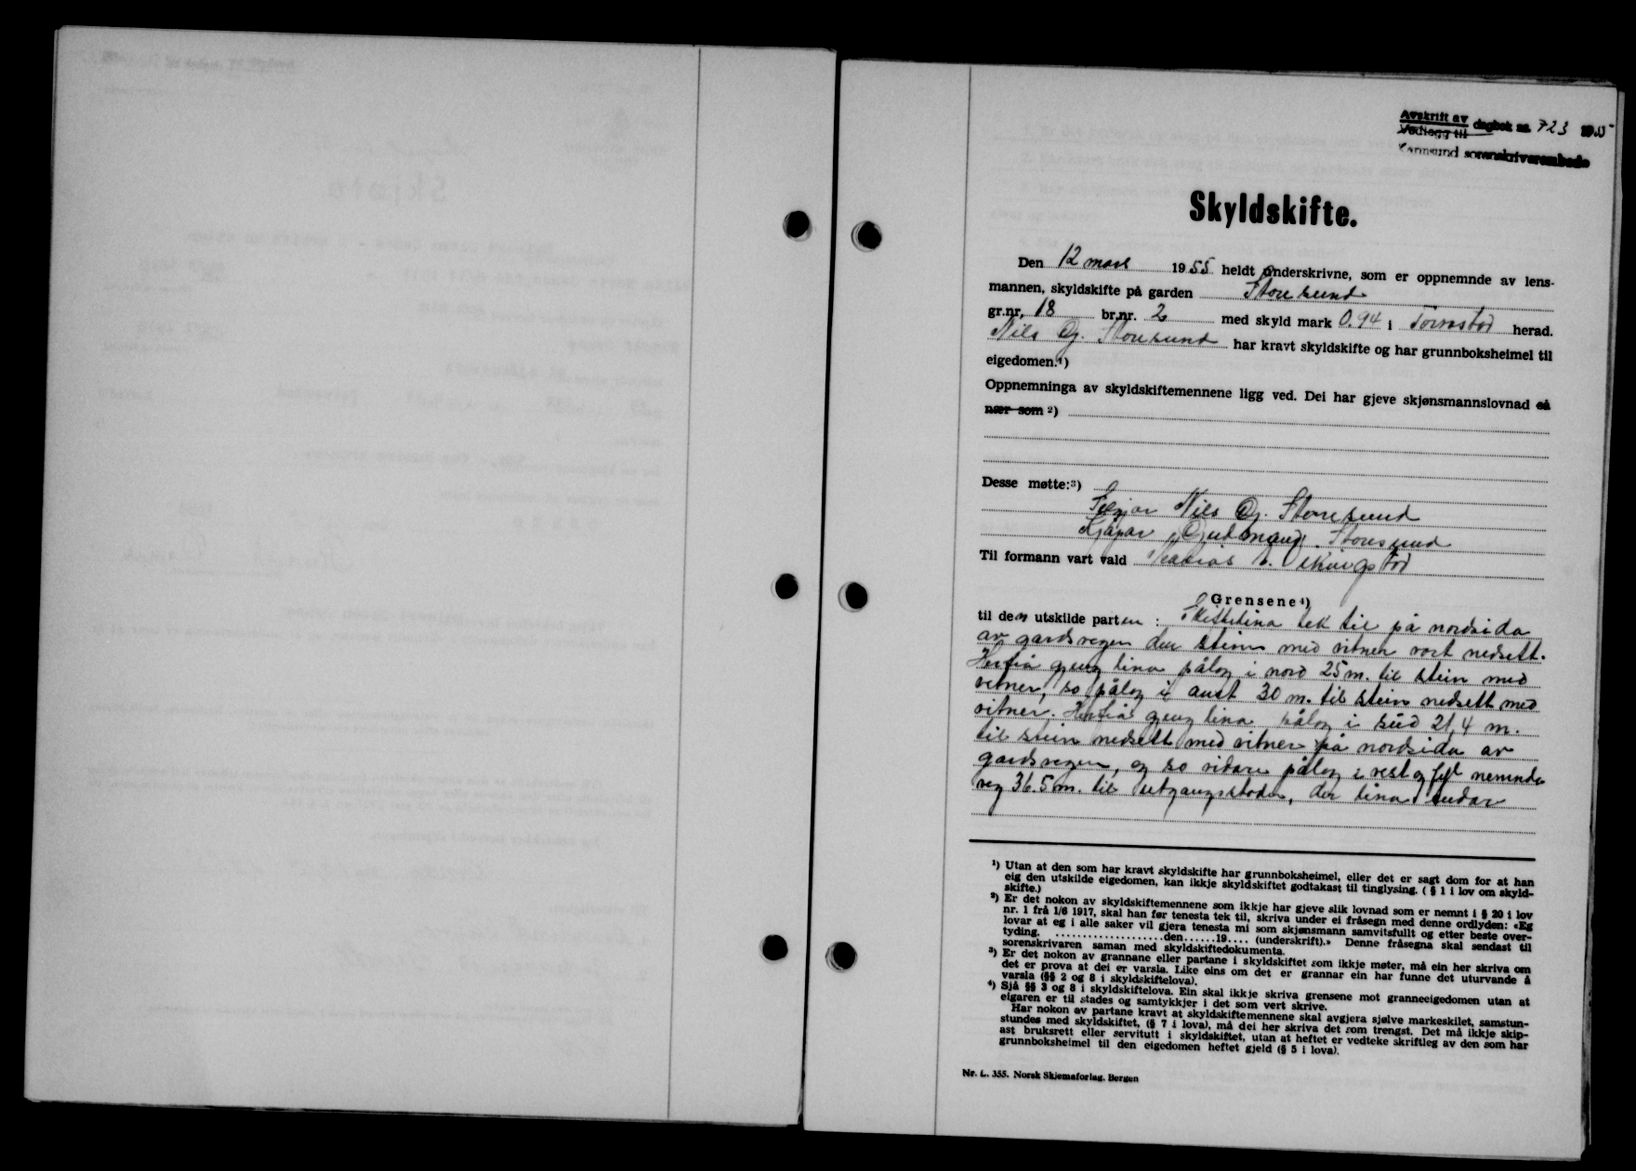 Avskrift av
Vedlegg til dagbok nr. 723 1955
Karmsund sorenskriverembede
Skyldskifte.
Den 12 mars 1955 heldt underskrivne, som er oppnemnde av lens-
mannen, skyldskifte på garden Storesund
gr.nr. 18 br.nr. 2 med skyld mark 0.94 i Torvastad herad.
Nils Gj. Storesund har kravt skyldskifte og har grunnboksheimel til
eigedomen.¹)
Oppnemninga av skyldskiftemennene ligg ved. Dei har gjeve skjønsmannslovnad så
nær som ²)
Desse møtte:³)
Seljar Nils Gj. Storesund
Kjøpar Gudmund Storesund
Til formann vart vald
Grensene⁴)
til den utskilde parten : Skiftelina tek til på nordsida
av gardsvegen der stein med vitner vart nedsett.
Herfrå geng lina pålag i nord 25 m. til stein med
vitner, so pålag i aust 30 m. til stein nedsett med
vitner. Herfrå geng lina pålag i sud 21,4 m.
til stein nedsett med vitner på nordsida av
gardsvegen, og so vidare pålag i vest og fyl nemnde
veg 36.5 m. til utgangsstaden, der lina endar
¹) Utan at den som har kravt skyldskifte har grunnboksheimel, eller det er sagt dom for at han
eig den utskilde eigedomen, kan ikkje skyldskiftet godtakast til tinglysing. ( § 1 i lov om skyld-
skifte.)
²) Er det nokon av skyldskiftemennene som ikkje har gjeve slik lovnad som er nemnt i § 20 i lov
nr. 1 frå 1/6 1917, skal han før tenesta tek til, skriva under ei fråsegn med denne ordlyden: «Eg
lovar at eg i alle saker vil gjera tenesta mi som skjønsmann samvitsfullt og etter beste over-
tyding. ....................den......19.... (underskrift).» Denne fråsegna skal sendast til
sorenskrivaren saman med skyldskiftedokumenta.
³) Er det nokon av grannane eller partane i skyldskiftet som ikkje møter, må ein her skriva om
det er prova at dei er varsla. Like eins om det er grannar ein har funne det uturvande å
varsla (§§ 2 og 8 i skyldskiftelova).
⁴) Sjå §§ 3 og 8 i skyldskiftelova. Ein skal ikkje skriva grensene mot granneeigedomen utan at
eigaren er til stades og samtykkjer i det som vert skrive.
Har nokon av partane kravt at skyldskiftemennene skal avgjera sjølve markeskilet, samstun-
stundes med skyldskiftet, (§ 7 i lova), må dei her skriva det som trengst. Det må ikkje skip-
ast bruksrett eller servitutt i skyldskiftet, utan at heftet er vedteke skriftleg av den som har
grunnboksheimel til den eigedomen heftet gjeld (§ 5 i lova).
Nr. L. 355. Norsk Skjemaforlag. Bergen